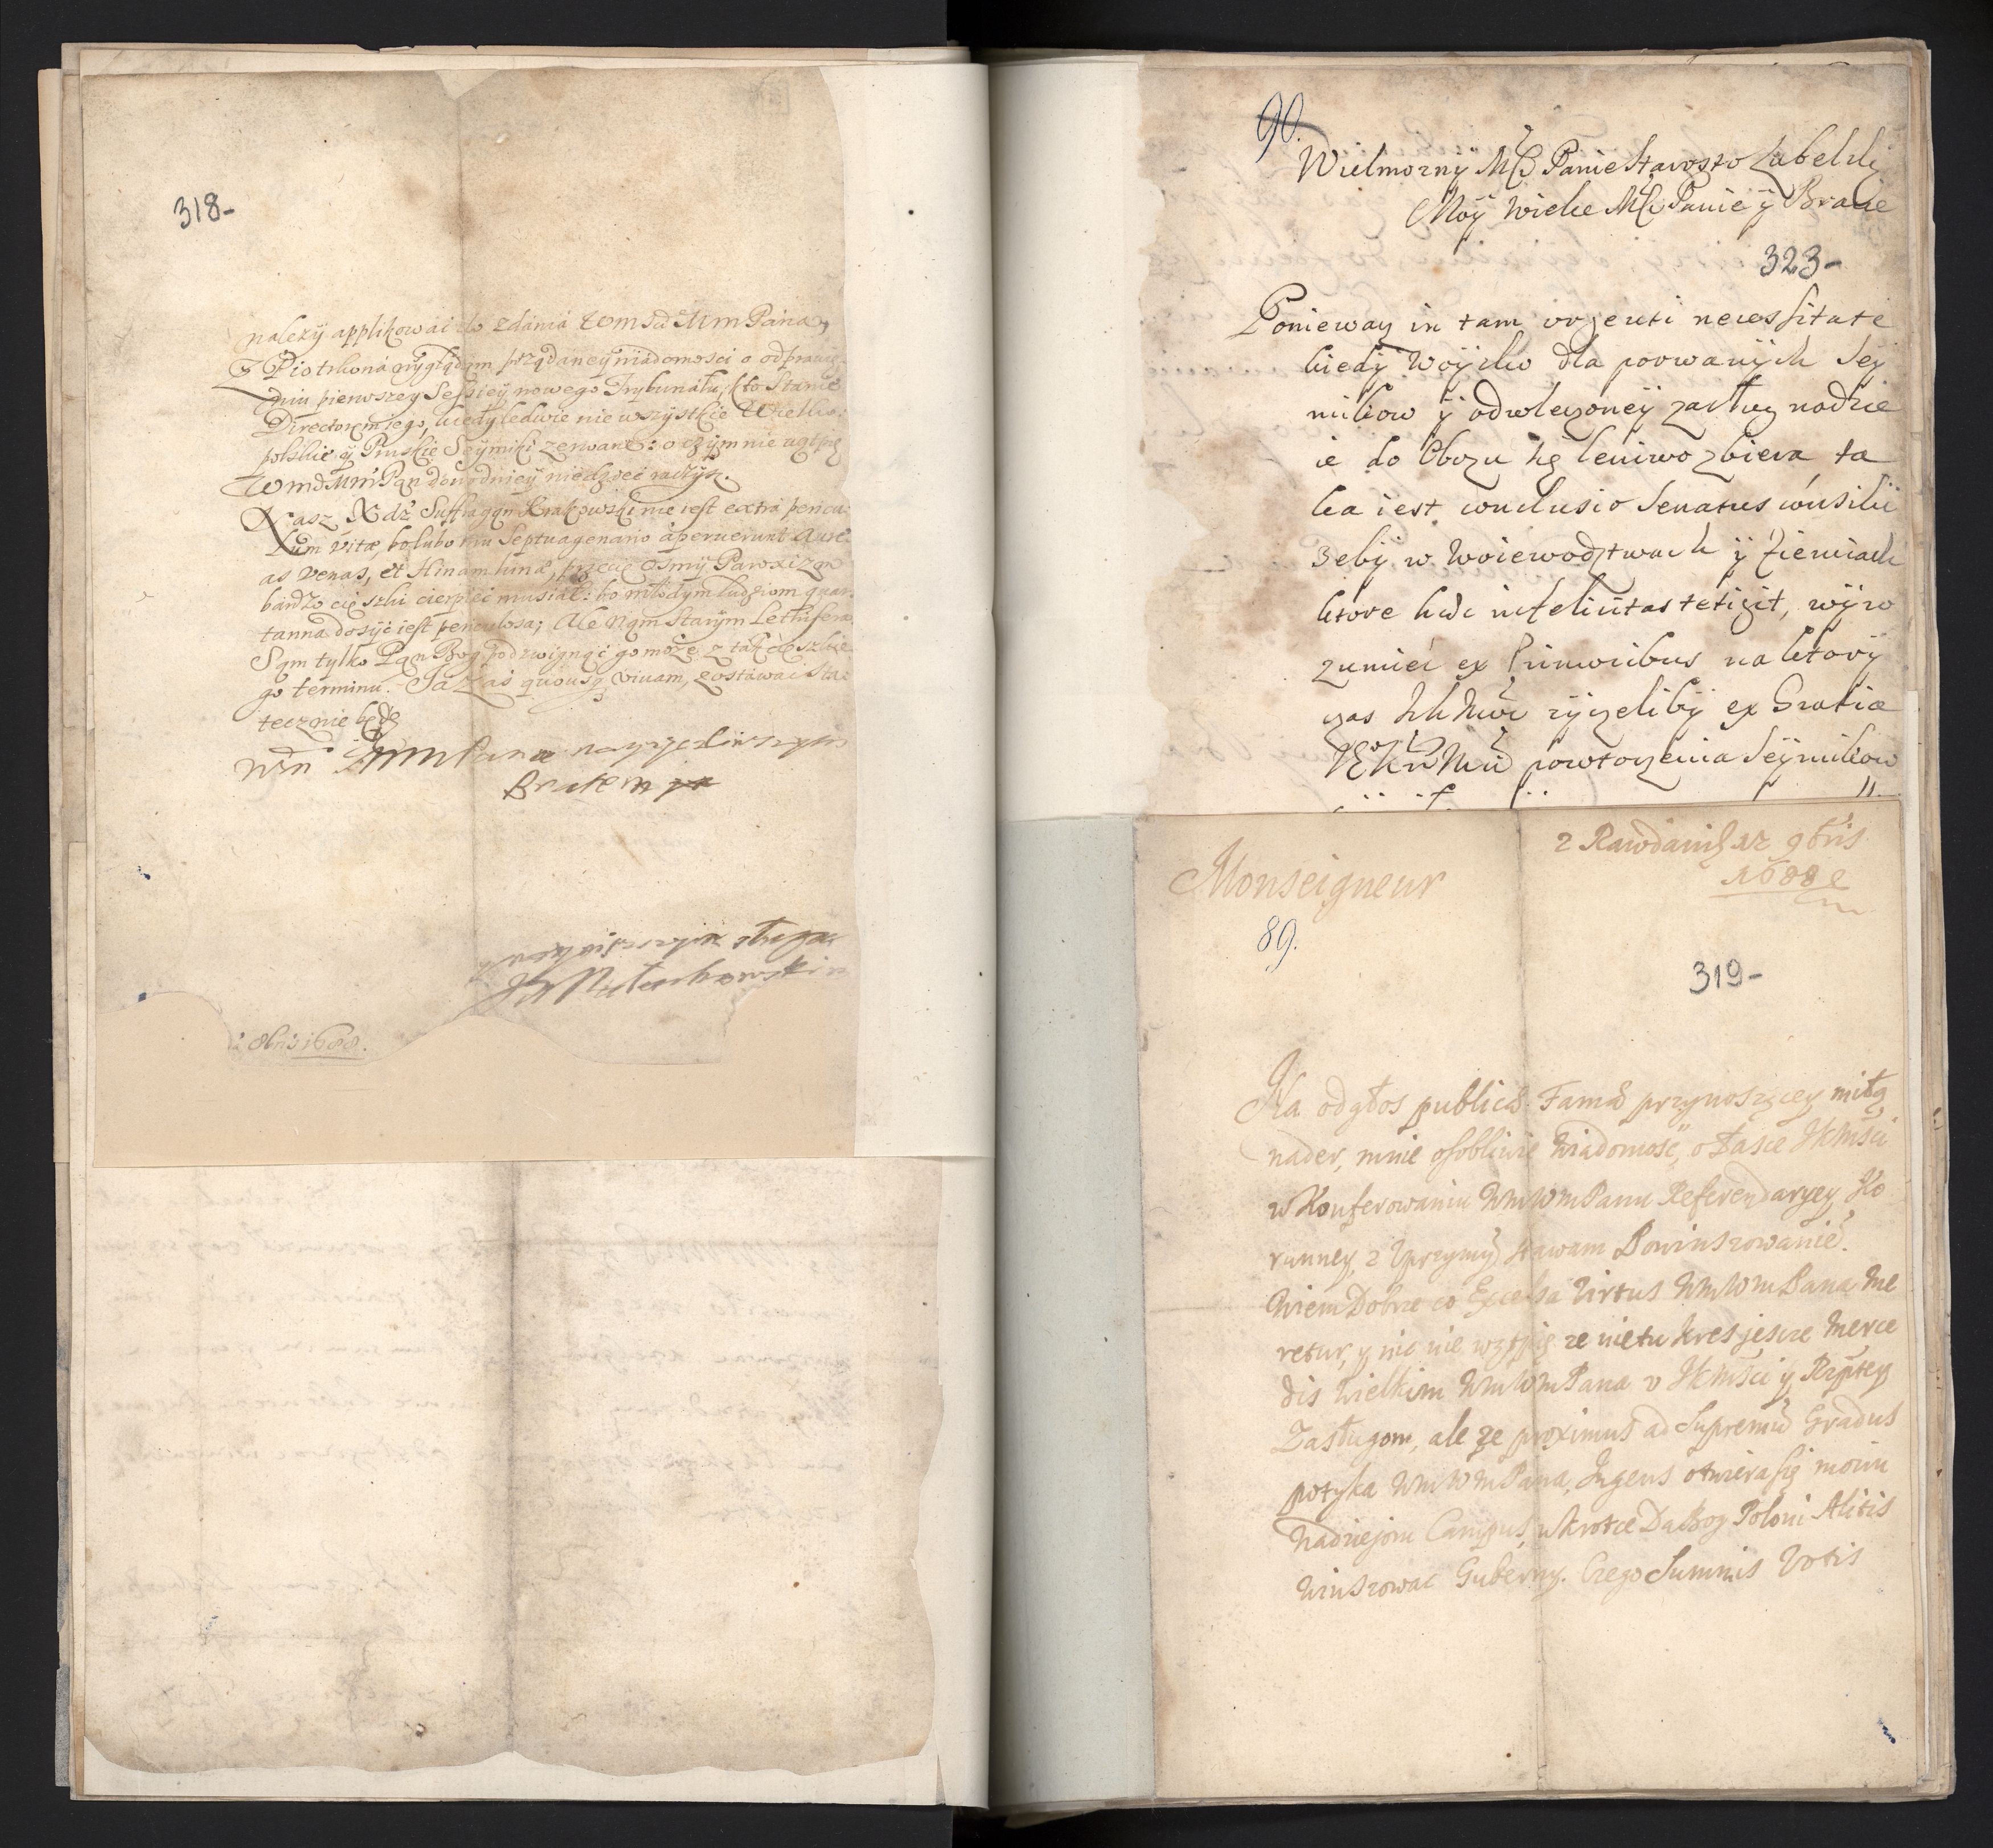 318-
należy applikować do zdania WmSu MmPana,
Z Piotrkowa wyglądam prządaney wiadomosci o odprawie-
niu pierwszey Sessiey nowego Trybunału, kto stanie
Directorem iego, kiedy ledwie nie wszystkie Wielko-
polskie y Pruskie Seymiki zerwane: o czym nie wątpię
WmSMm Pan dowodniey wiedzieć raczysz.
Nasz Xdz Suffragan Krakowski nie iest extra pericu-
lum vitæ, bo lubo mu Septuagenario aperuerunt
as venas, et Hinam hina, przecię osmy Paroxizm
bardzo cięszki cierpieć musiał: bo młodym ludziom quar-
tanna dosyć iest periculosa; Ale nam starym Lethifera
Sam tylko Pan Bog podzwignąć go może z tak cięszkie-
go terminu. Ja zas quousq vivam, zostawać sta-
tecznie będę
Pana nayzyczliwszym
Bratem
sługa
Małachowski
8bris 1688.
90.
Wielmozny Mć Panie Starosto Lubelski
Moy Wielce Mć Panie y Bracie
323-
Ponieway in tam urgenti necessitate
kiedy Woysko dla porwanych Sey
mikow y odwleczoney zasług nadzie
ie do Obozu się leniwo zbiera, ta
ka iest conclusio Senatus consilii
zeby w Woiewodztwach y Ziemiach
ktore haec infelicitas tetigit, wyro
zumieć ex Primoribus na ktory
czas życzeliby ex Gratia
powtorzenia Seymikow
Monseigneur
z Rawdanis 12 9bris
1688
89.
319-
Na odgłos publicæ Famæ przynoszącey miłą
nader, mnie osobliwie wiadomość, o Łasce JKMsci
w Konferowaniu WmWmPanu Referendaryey Ko
ronney, z Uprzymym stawam Powinszowaniem.
Wiem Dobrze co Excelsa Virtus WmWmPana me
retur, y nic nie wątpię ze nie tu kres jescze merce
dis wielkim WmWmPana u JKMsci y Rzptey
Zasługom, ale ze proximus ad Supremū Gradus
potyka WmWmPana, Ingens otwiera się moim
nadziejom Campus, wkrotce Da Bog Poloni Alitis
winszowac Guberny. Czego Summis Votis